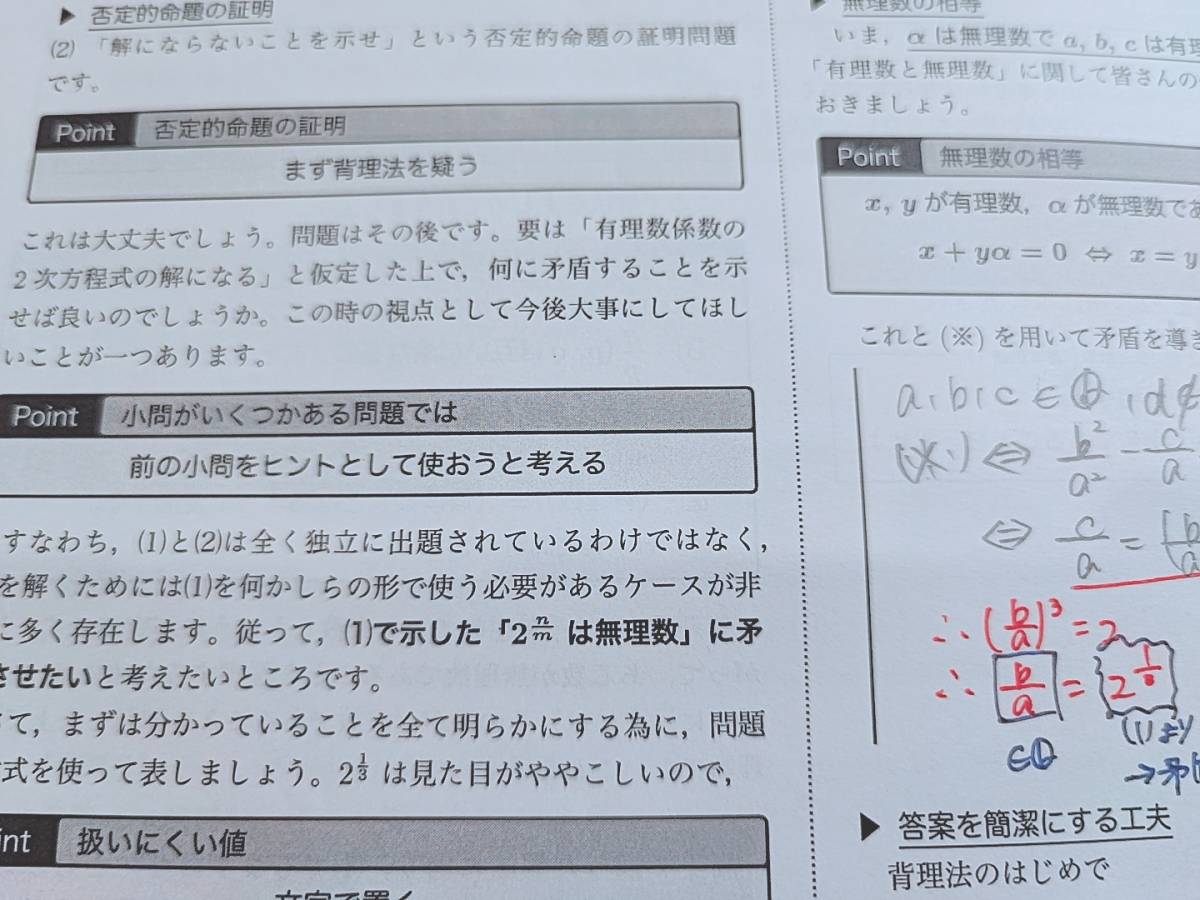 ▶ 否定的命題の証明
(2) 「解にならないことを示せ」という否定的命題の証明問題
です。
Point 否定的命題の証明
まず背理法を疑う
これは大丈夫でしょう。問題はその後です。要は「有理数係数の
2次方程式の解になる」と仮定した上で，何に矛盾することを示
せば良いのでしょうか。この時の視点として今後大事にしてほし
いことが一つあります。
Point 小問がいくつかある問題では
前の小問をヒントとして使おうと考える
すなわち，(1)と(2)は全く独立に出題されているわけではなく，
を解くためには(1)を何かしらの形で使う必要があるケースが非
に多く存在します。従って，(1)で示した「2^{n/m} は無理数」に矛
させたいと考えたいところです。
て，まずは分かっていることを全て明らかにする為に，問題
式を使って表しましょう。2^{1/3} は見た目がややこしいので，
int 扱いにくい値
文字で置く
▶ 無理数の相等
いま，α は無理数で a, b, c は有理
「有理数と無理数」に関して皆さんの
おきましょう。
Point 無理数の相等
x, y が有理数，α が無理数であ
x + yα = 0 ⇔ x = y
これと (※) を用いて矛盾を導き
a, b, c ∈ Q, α∉
(※) ⇔ b²/a² − c/a
⇔ c/a = (b/a
∴ (b/a)³ = 2
∴ b/a = 2^{1/3}
∈Q (1)より
→矛
▶ 答案を簡潔にする工夫
背理法のはじめで